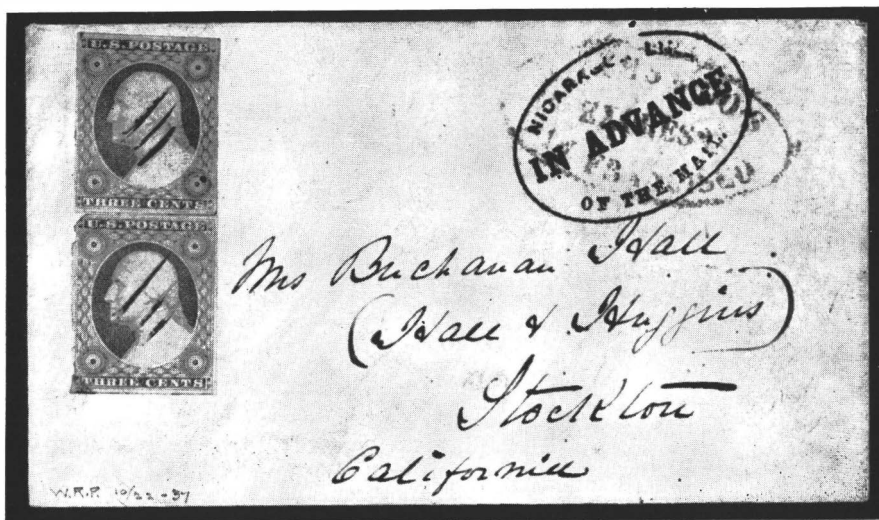 U.S. POSTAGE
THREE CENTS
U.S. POSTAGE
THREE CENTS
IN ADVANCE
OF THE MAIL.
Mrs Buchanan Hall
(Hall & Huggins)
Stockton
California
W.R.P. 10/22-37